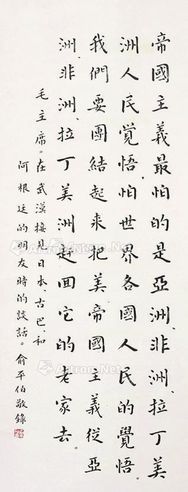 帝國主義最怕的是亞洲、非洲、拉丁美
洲人民覺悟、怕世界各國人民的覺悟。
我們要團結起來把美帝國主義從亞
洲、非洲、拉丁美洲赶回它的老家去。
毛主席。在武漢接見日本、古巴、和
阿根廷的朋友時的談話。俞平伯敬錄